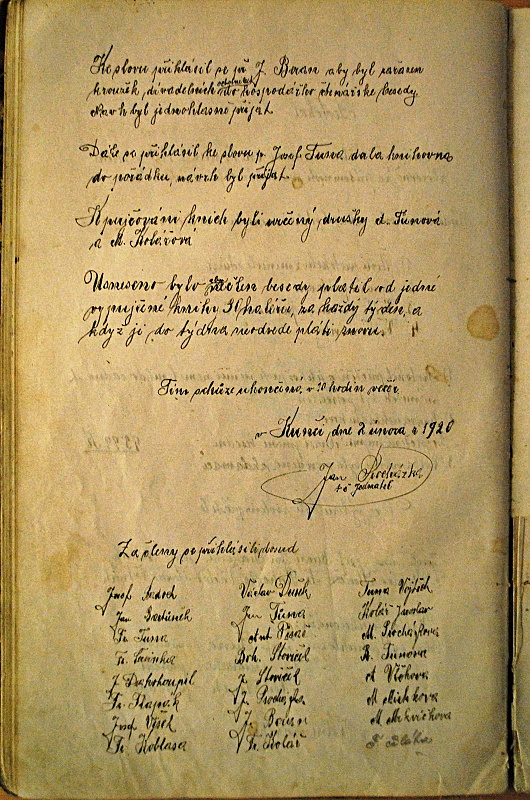 Ke slovu přihlásil se př J. Beran aby byl zařazen
kroužek divadelních ochotníků do hospodářsko čtenářské besedy.
Návrh byl jednohlasně přijat
Dále se přihlásil ke slovu p. Josef Tuma dala knihovna
do pořádku, návrh byl přijat.
K půjčování knich byli určený, družky A. Tůnová
a M. Kolářová
Usneseno bylo aby člen besedy platil od jedné
vypujčené knihy 30 haléřu, za každý týden, a
když ji do týdna neodvede platí znovu.
Tím schůze ukončena, v 10 hodin večer.
v Kunčí dne 2 února 1920
Jan Procházka
t č jednatel
Za členy se přihlásili dosud
Josef
Václav Dušek
Tuma Vojtěch
Jan
Jan Tůma
Kolář Jaroslav
Fr. Tuma
M. Procházkova
Fr.
Boh. Stoviček
R. Tumova
J. Drahokoupil
J. Stoviček
A Vlčkova
Fr.
J. Procházka
M
Josef Vlšek
J Beran
M
Fr. Koblasa
Fr. Kolář